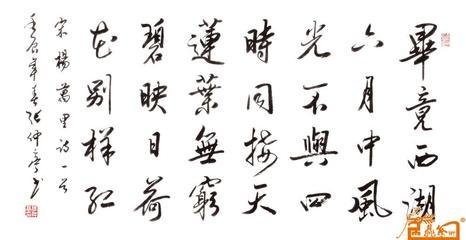 畢竟西湖
六月中風
光不與四
時同接天
蓮葉無窮
碧映日荷
花别樣紅
宋楊萬里詩一首
壬辰年春张仲亭书